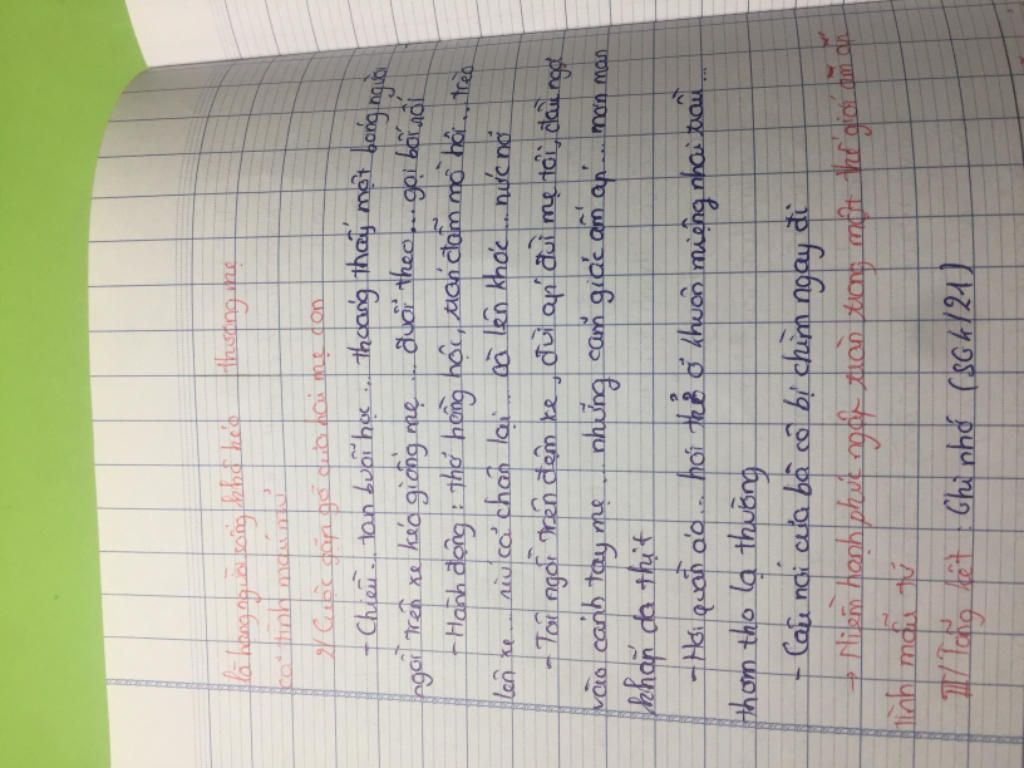 là hạng người sống khô héo thương mẹ
có tình máu mủ
2/ Cuộc gặp gỡ của hai mẹ con
- Chiều... tan buổi học... thoáng thấy một bóng người
ngồi trên xe kéo giống mẹ... đuổi theo... gọi bối rối
- Hành động: thở hồng hộc, trán đẫm mồ hôi... trèo
lên xe... níu cả chân lại... oà lên khóc... nức nở
- Tôi ngồi trên đệm xe, đùi áp đùi mẹ tôi, đầu ngả
vào cánh tay mẹ... những cảm giác ấm áp... mơn man
khắp da thịt
- Hơi quần áo... hơi thở ở khuôn miệng nhai trầu...
thơm tho lạ thường
- Câu nói của bà cô bị chìm ngay đi
→ Niềm hạnh phúc ngập tràn trong một thế giới ấm áp
tình mẫu tử
III/ Tổng kết: Ghi nhớ (SGK/21)